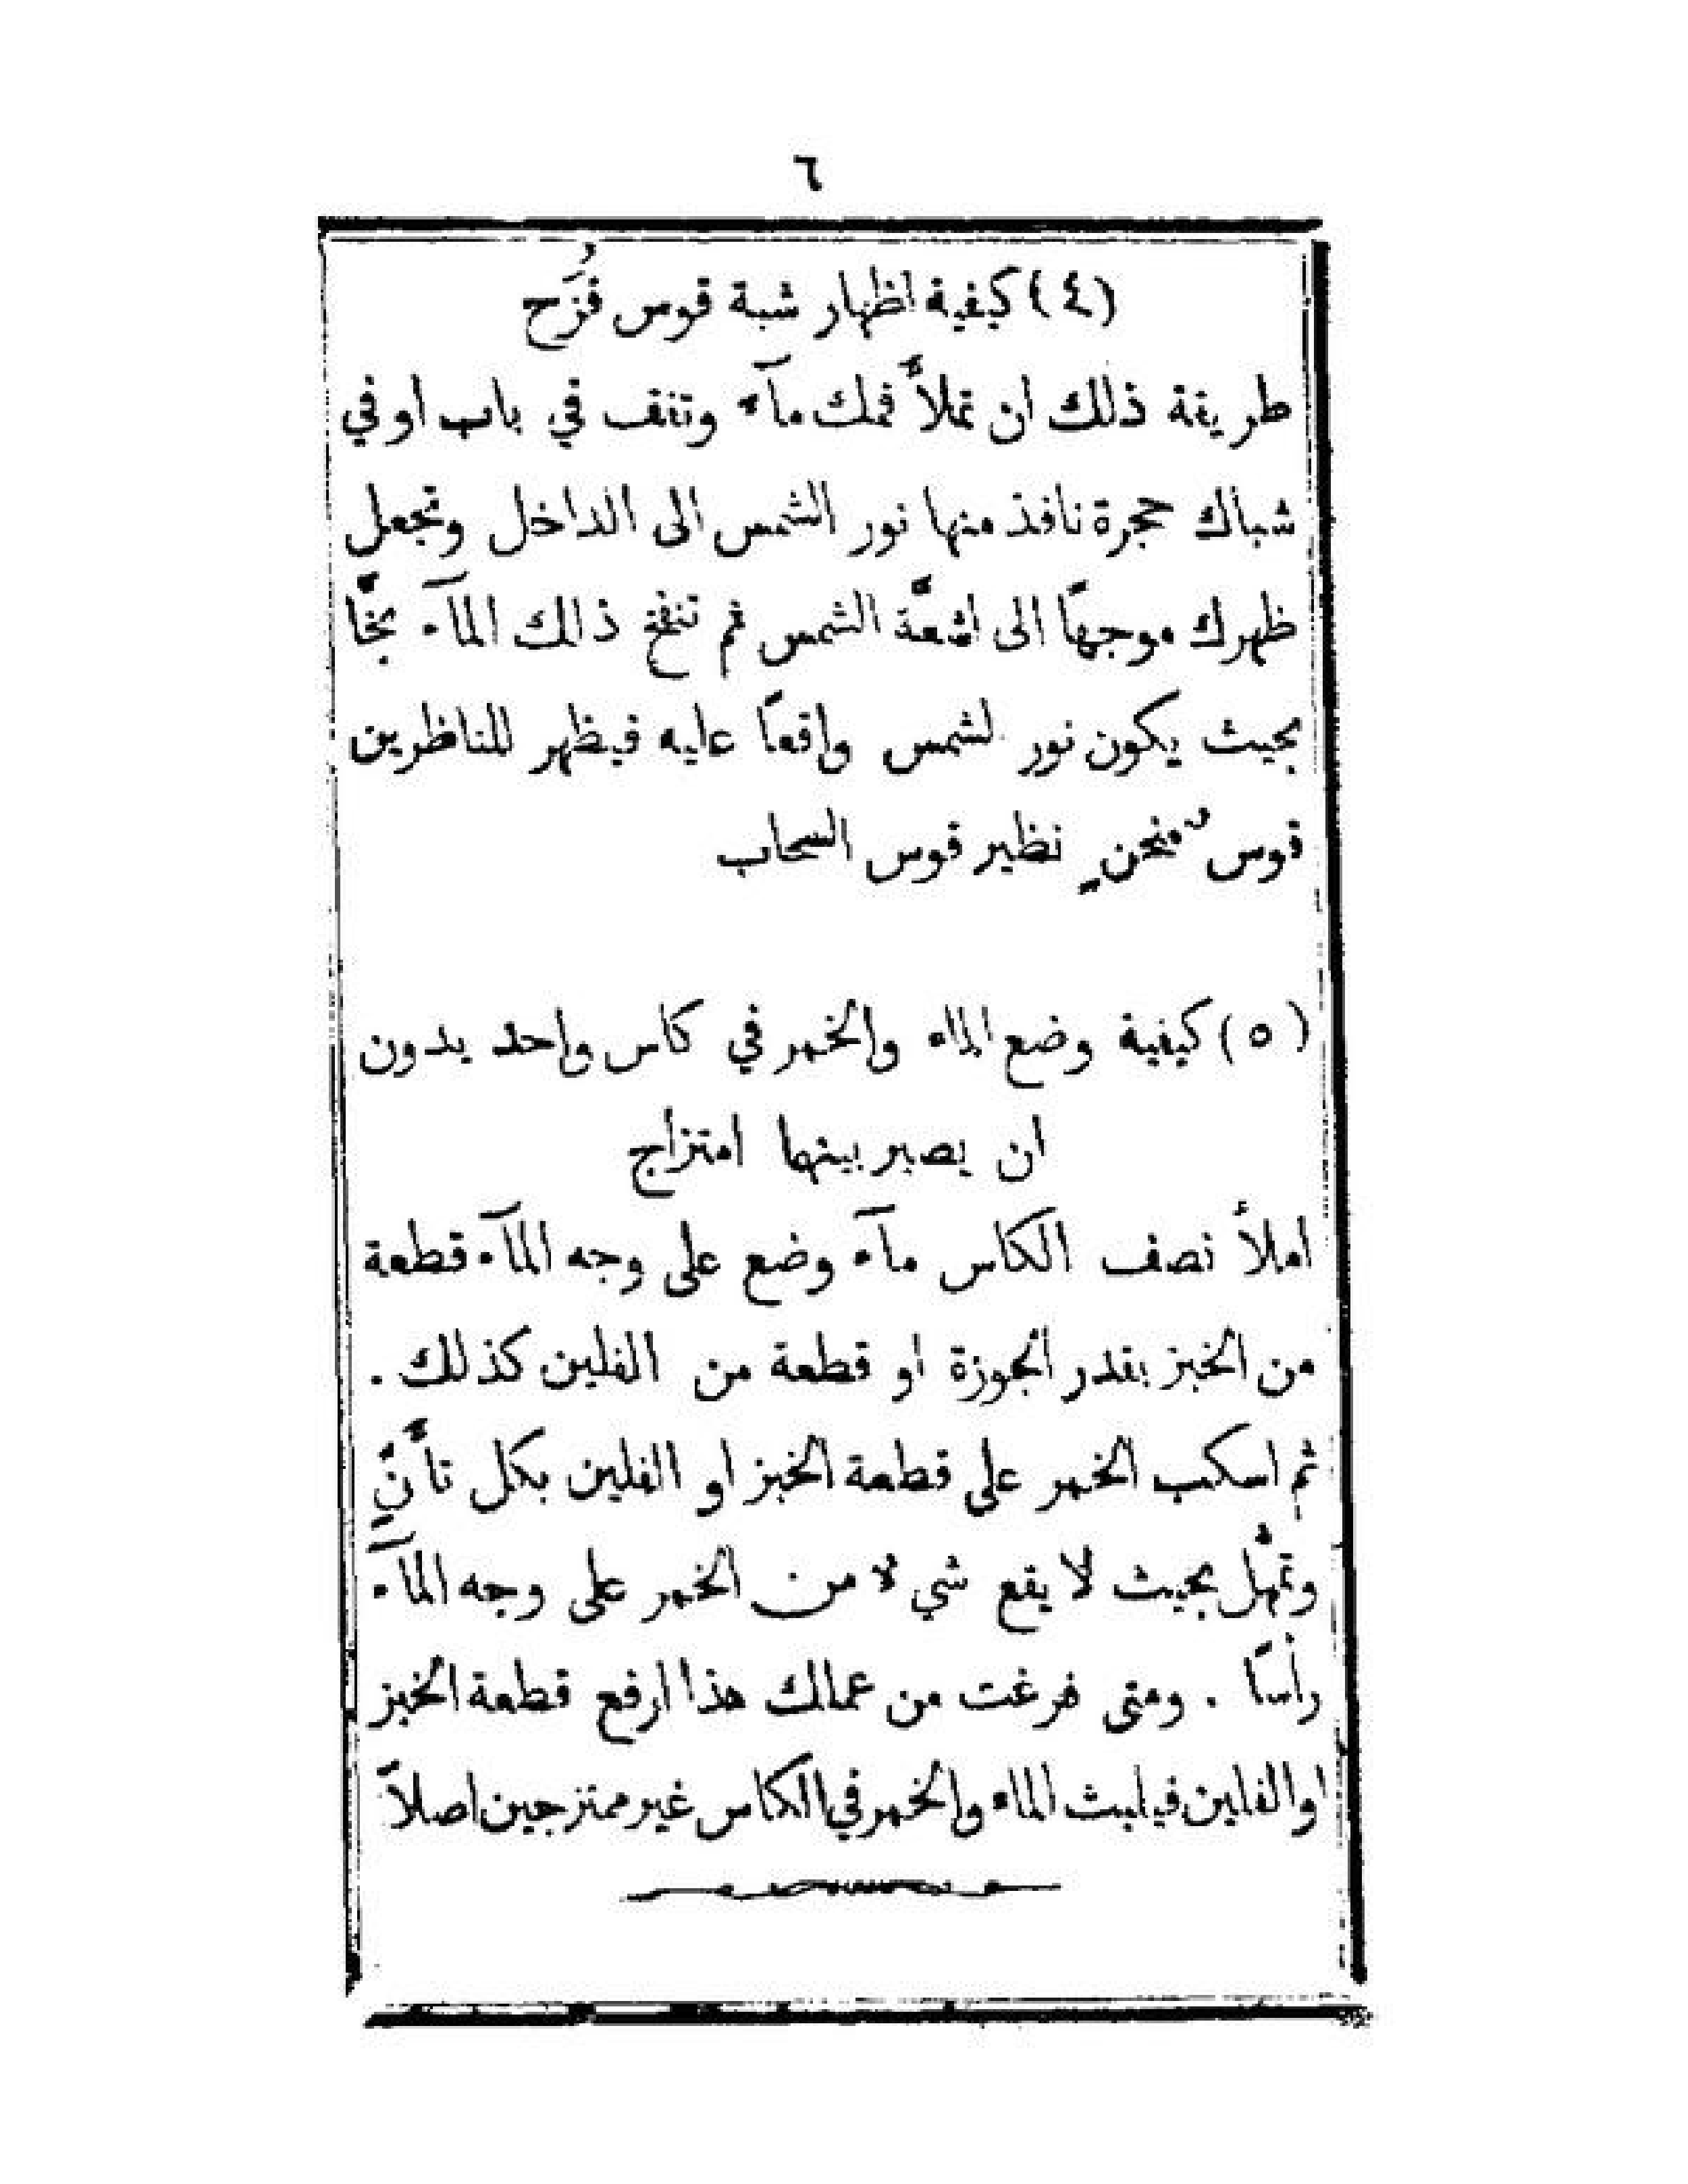 ٦
(٤) كيفية اظهار شبة قوس قُزَح
طريقة ذلك ان تملأَّ فمك مآء وتقف في باب او في
شباك حجرة نافذ منها نور الشمس الى الداخل وتجعل
ظهرك موجهًا الى اشعَّة الشمس ثم تنفخ ذلك المآء بخًّا
بحيث يكون نور لشمس واقعًا عليه فيظهر للناظرين
قوس منحنٍ نظير قوس السحاب
(٥) كيفية وضع الماء والخمر في كاس واحد بدون
ان يصير بينها امتزاج
املأ نصف الكاس مآء وضع على وجه المآء قطعة
من الخبز بقدر الجوزة او قطعة من الفلين كذلك .
ثم اسكب الخمر على قطعة الخبز او الفلين بكل تأَنٍّ
وتمهُّل بحيث لا يقع شيءٌ من الخمر على وجه المآء
رأسًا . ومتى فرغت من عملك هذا ارفع قطعة الخبز
او الفلين فيلبث الماء والخمر في الكاس غير ممتزجين اصلاً